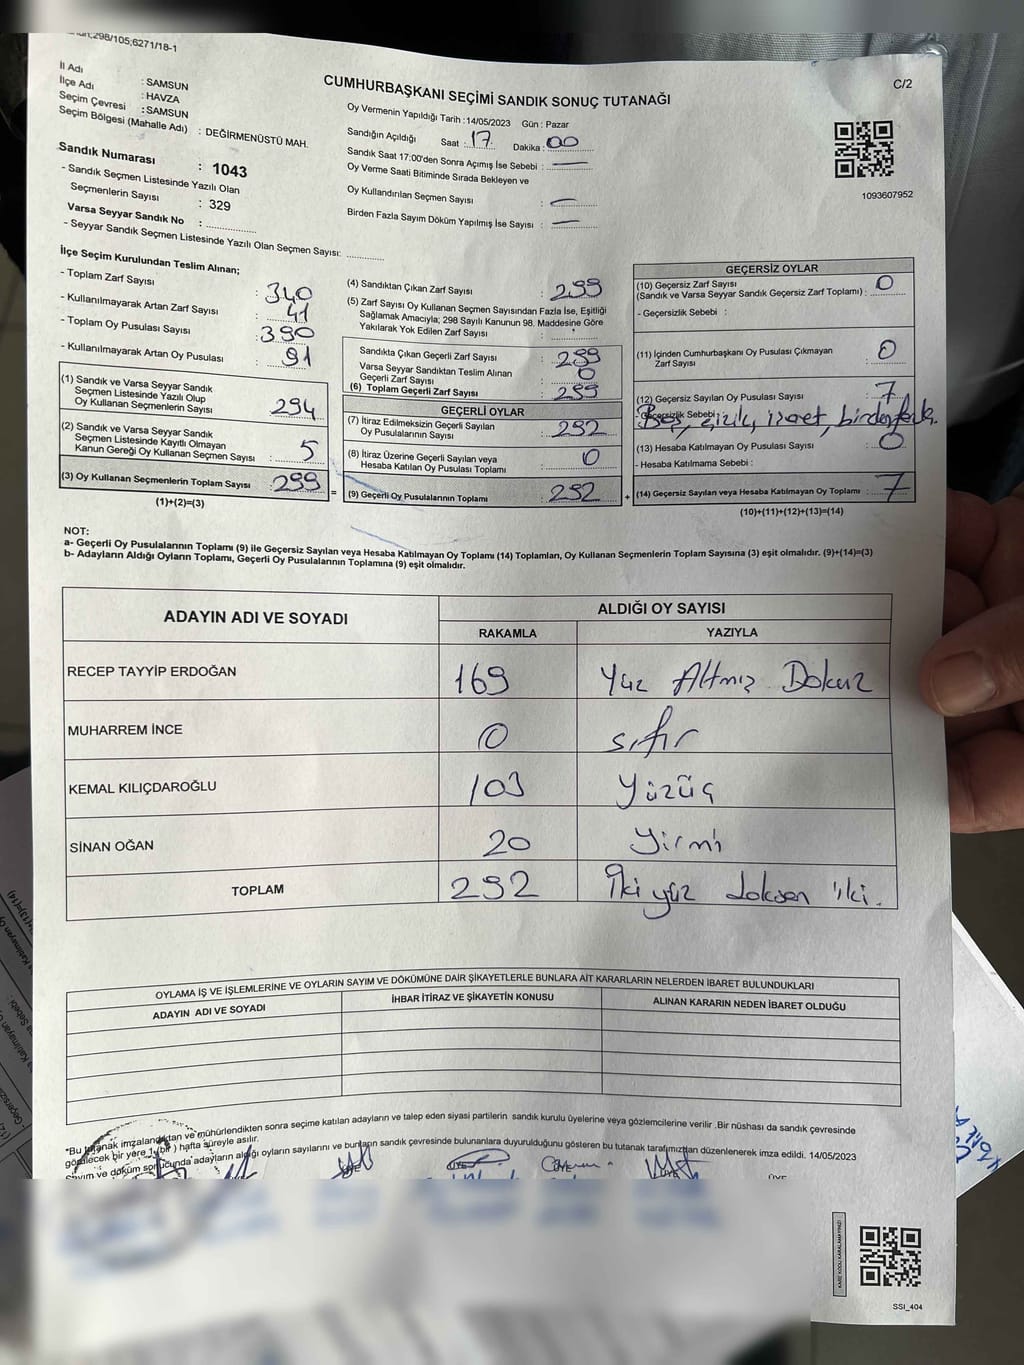 298/105;6271/18-1
C/2
İl Adı : SAMSUN
İlçe Adı : HAVZA
Seçim Çevresi : SAMSUN
Seçim Bölgesi (Mahalle Adı) : DEĞİRMENÜSTÜ MAH.
CUMHURBAŞKANI SEÇİMİ SANDIK SONUÇ TUTANAĞI
Oy Vermenin Yapıldığı Tarih :14/05/2023 Gün : Pazar
Sandığın Açıldığı Saat : 17 Dakika : 00
Sandık Saat 17:00'den Sonra Açımış İse Sebebi : —
Oy Verme Saati Bitiminde Sırada Bekleyen ve
Oy Kullandırılan Seçmen Sayısı : —
Birden Fazla Sayım Döküm Yapılmış İse Sayısı : —
1093607952
Sandık Numarası : 1043
- Sandık Seçmen Listesinde Yazılı Olan
Seçmenlerin Sayısı : 329
Varsa Seyyar Sandık No :
- Seyyar Sandık Seçmen Listesinde Yazılı Olan Seçmen Sayısı:
İlçe Seçim Kurulundan Teslim Alınan;
- Toplam Zarf Sayısı : 340
- Kullanılmayarak Artan Zarf Sayısı : 41
- Toplam Oy Pusulası Sayısı : 390
- Kullanılmayarak Artan Oy Pusulası : 91
(1) Sandık ve Varsa Seyyar Sandık
Seçmen Listesinde Yazılı Olup
Oy Kullanan Seçmenlerin Sayısı : 294
(2) Sandık ve Varsa Seyyar Sandık
Seçmen Listesinde Kayıtlı Olmayan
Kanun Gereği Oy Kullanan Seçmen Sayısı : 5
(3) Oy Kullanan Seçmenlerin Toplam Sayısı : 299
(1)+(2)=(3)
(4) Sandıktan Çıkan Zarf Sayısı : 299
(5) Zarf Sayısı Oy Kullanan Seçmen Sayısından Fazla İse, Eşitliği
Sağlamak Amacıyla; 298 Sayılı Kanunun 98. Maddesine Göre
Yakılarak Yok Edilen Zarf Sayısı :
Sandıkta Çıkan Geçerli Zarf Sayısı : 299
Varsa Seyyar Sandıktan Teslim Alınan
Geçerli Zarf Sayısı : 0
(6) Toplam Geçerli Zarf Sayısı : 299
GEÇERLİ OYLAR
(7) İtiraz Edilmeksizin Geçerli Sayılan
Oy Pusulalarının Sayısı : 292
(8) İtiraz Üzerine Geçerli Sayılan veya
Hesaba Katılan Oy Pusulası Toplamı : 0
= (9) Geçerli Oy Pusulalarının Toplamı : 292 +
GEÇERSİZ OYLAR
(10) Geçersiz Zarf Sayısı
(Sandık ve Varsa Seyyar Sandık Geçersiz Zarf Toplamı) : 0
- Geçersizlik Sebebi :
(11) İçinden Cumhurbaşkanı Oy Pusulası Çıkmayan
Zarf Sayısı : 0
(12) Geçersiz Sayılan Oy Pusulası Sayısı : 7
- Geçersizlik Sebebi : Boş, çizik, işaret, birden fazla.
(13) Hesaba Katılmayan Oy Pusulası Sayısı : 0
- Hesaba Katılmama Sebebi :
(14) Geçersiz Sayılan veya Hesaba Katılmayan Oy Toplamı : 7
(10)+(11)+(12)+(13)=(14)
NOT:
a- Geçerli Oy Pusulalarının Toplamı (9) ile Geçersiz Sayılan veya Hesaba Katılmayan Oy Toplamı (14) Toplamları, Oy Kullanan Seçmenlerin Toplam Sayısına (3) eşit olmalıdır. (9)+(14)=(3)
b- Adayların Aldığı Oyların Toplamı, Geçerli Oy Pusulalarının Toplamına (9) eşit olmalıdır.
ADAYIN ADI VE SOYADI
ALDIĞI OY SAYISI
RAKAMLA YAZIYLA
RECEP TAYYİP ERDOĞAN 169 Yüz Altmış Dokuz
MUHARREM İNCE 0 sıfır
KEMAL KILIÇDAROĞLU 103 Yüzüç
SİNAN OĞAN 20 Yirmi
TOPLAM 292 İki yüz doksan iki.
OYLAMA İŞ VE İŞLEMLERİNE VE OYLARIN SAYIM VE DÖKÜMÜNE DAİR ŞİKAYETLERLE BUNLARA AİT KARARLARIN NELERDEN İBARET BULUNDUKLARI
ADAYIN ADI VE SOYADI İHBAR İTİRAZ VE ŞİKAYETİN KONUSU ALINAN KARARIN NEDEN İBARET OLDUĞU
*Bu tutanak imzalandıktan ve mühürlendikten sonra seçime katılan adayların ve talep eden siyasi partilerin sandık kurulu üyelerine veya gözlemcilerine verilir .Bir nüshası da sandık çevresinde
görülecek bir yere 1 ( bir ) hafta süreyle asılır.
Sayım ve döküm sonucunda adayların aldığı oyların sayılarını ve bunların sandık çevresinde bulunanlara duyurulduğunu gösteren bu tutanak tarafımızdan düzenlenerek imza edildi. 14/05/2023
ÜYE ÜYE ÜYE ÜYE ÜYE
KARE KODU KARALAMAYINIZ!
SSI_404